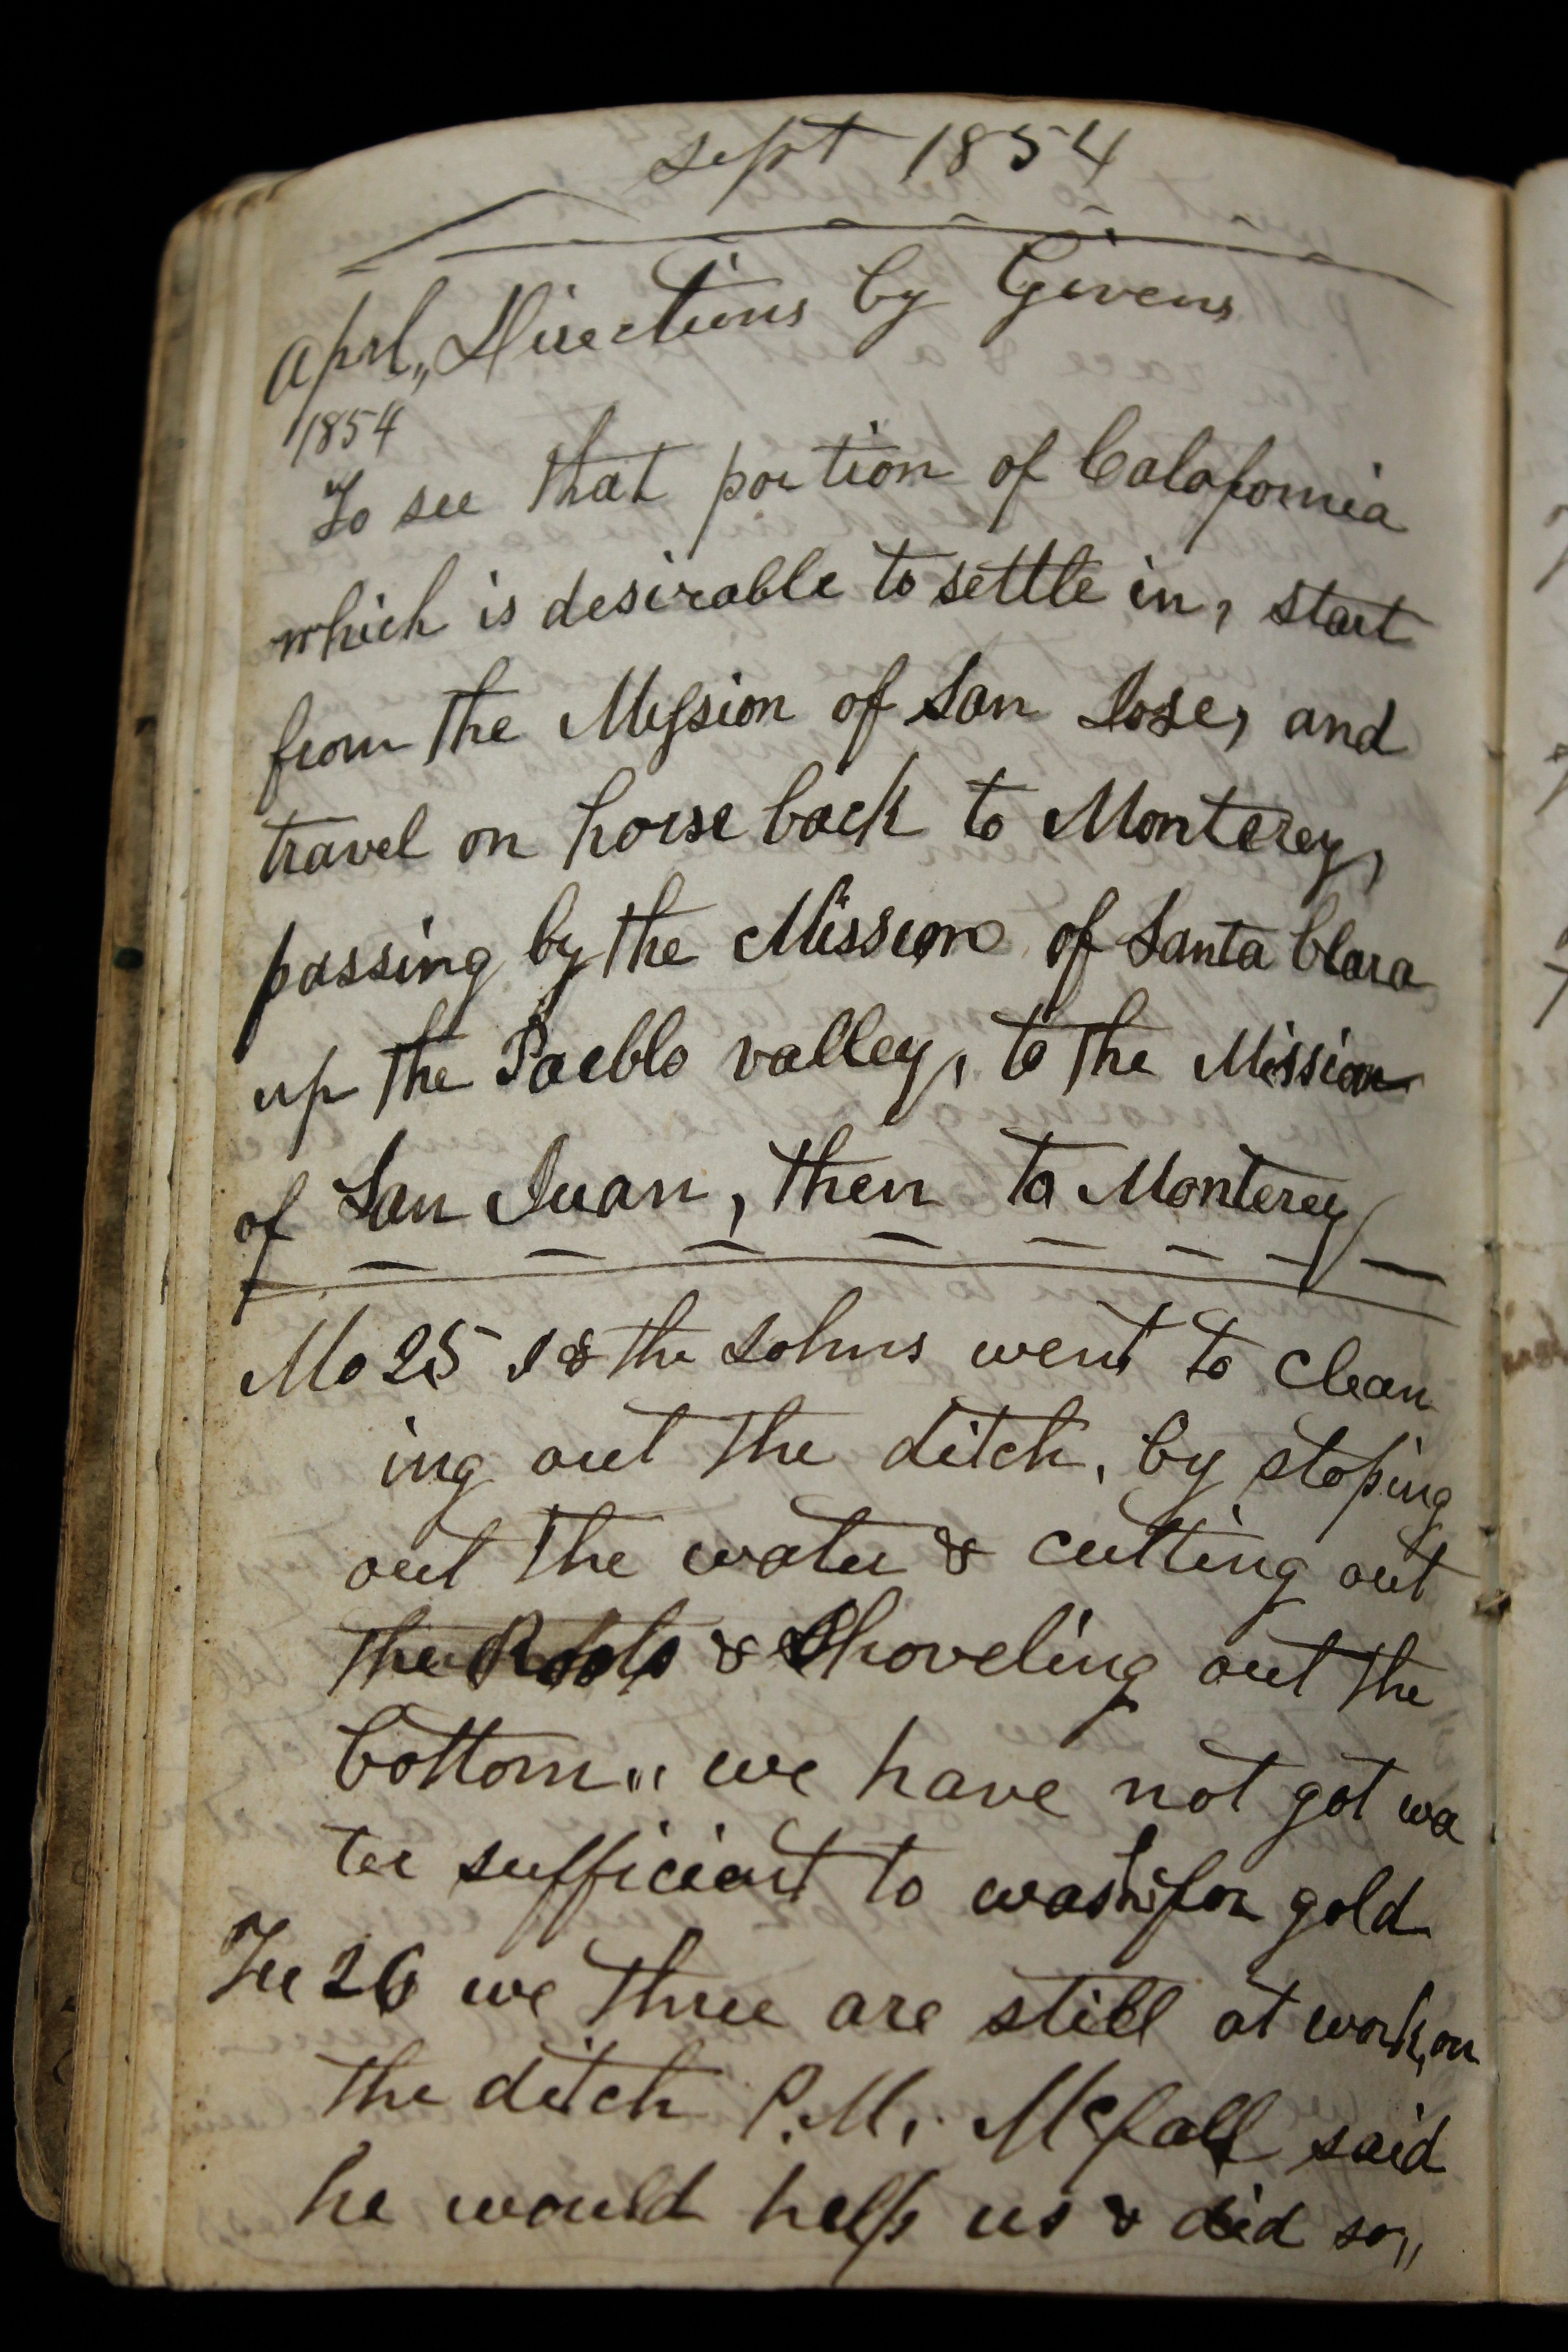 sept 1854
Aprl,, Directions by Givens
1854
To see that portion of Calafornia
which is desirable to settle in, start
from the Mission of San Jose, and
travel on horse back to Monterey,
passing by the Mission of Santa Clara
up the Paeblo valley, to the Mission
of San Juan, then to Monterey
Mo 25 I & the Johns went to clean
ing out the ditch, by stoping
out the water & cutting out
the Roots & Shoveling out the
bottom,, we have not got wa
ter sufficient to wash for gold
Tu 26 we three are still at work, on
the ditch P.M. Mcfall said
he would help us & did so,,